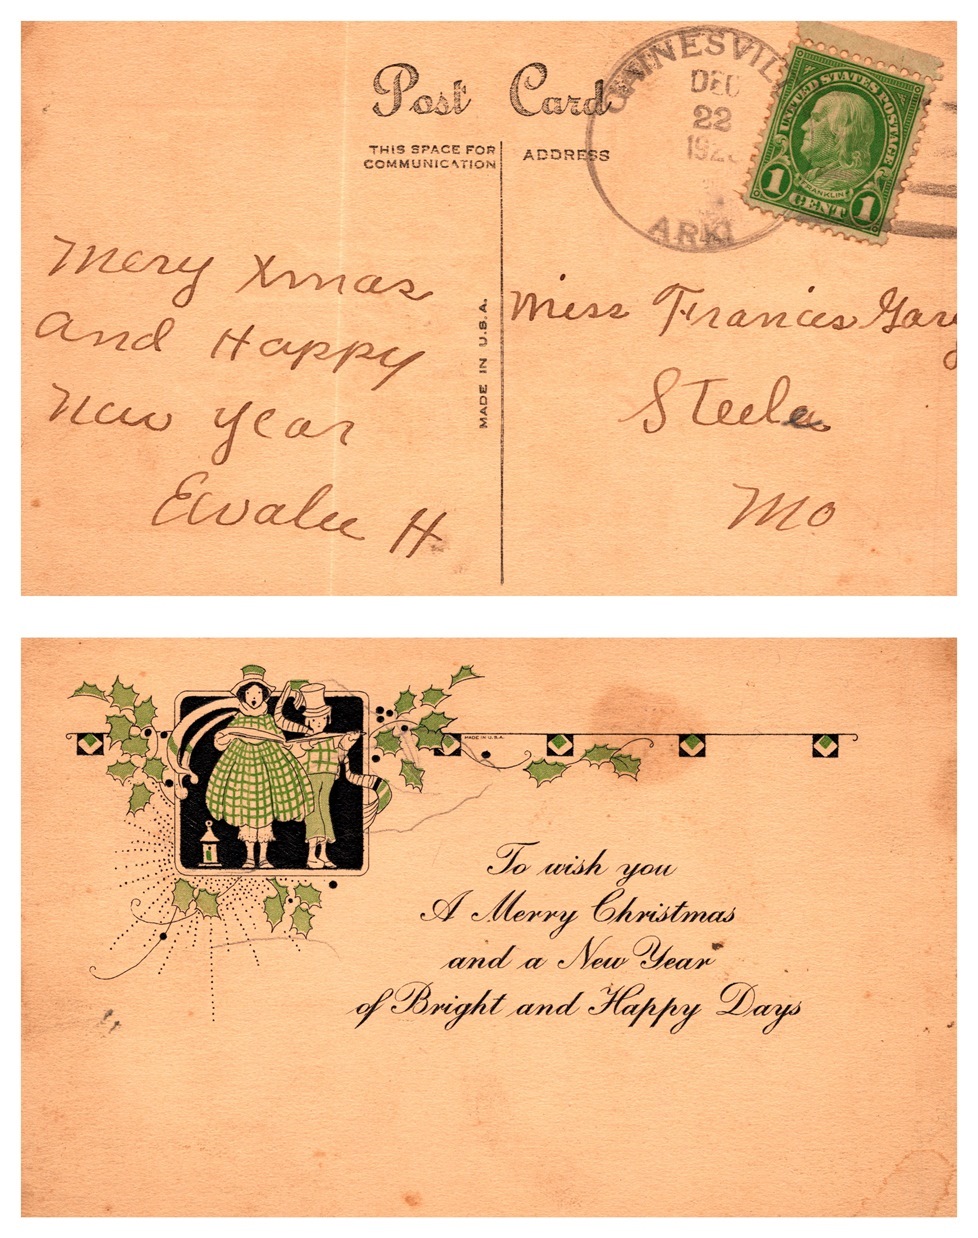 Post Card
THIS SPACE FOR
COMMUNICATION
ADDRESS
GAINESVIL
DEC
22
192
ARK
UNITED STATES POSTAGE
FRANKLIN
1 CENT 1
Mery Xmas
and Happy
New year
Ewalee H
MADE IN U.S.A.
Miss Francis Gary
Steele
Mo
MADE IN U.S.A.
To wish you
A Merry Christmas
and a New Year
of Bright and Happy Days